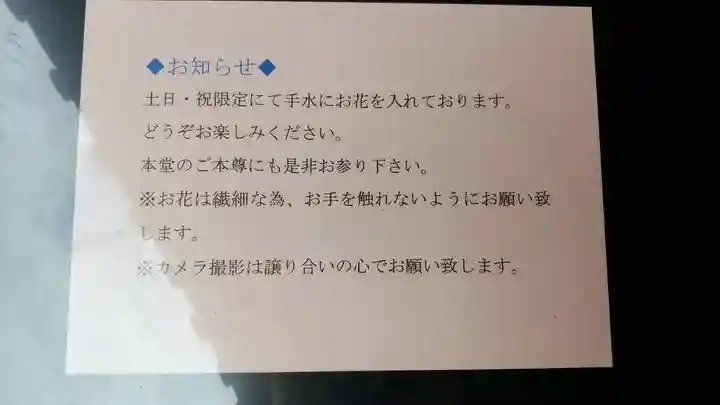 ◆お知らせ◆
土日・祝限定にて手水にお花を入れております。
どうぞお楽しみください。
本堂のご本尊にも是非お参り下さい。
※お花は繊細な為、お手を触れないようにお願い致
します。
※カメラ撮影は譲り合いの心でお願い致します。